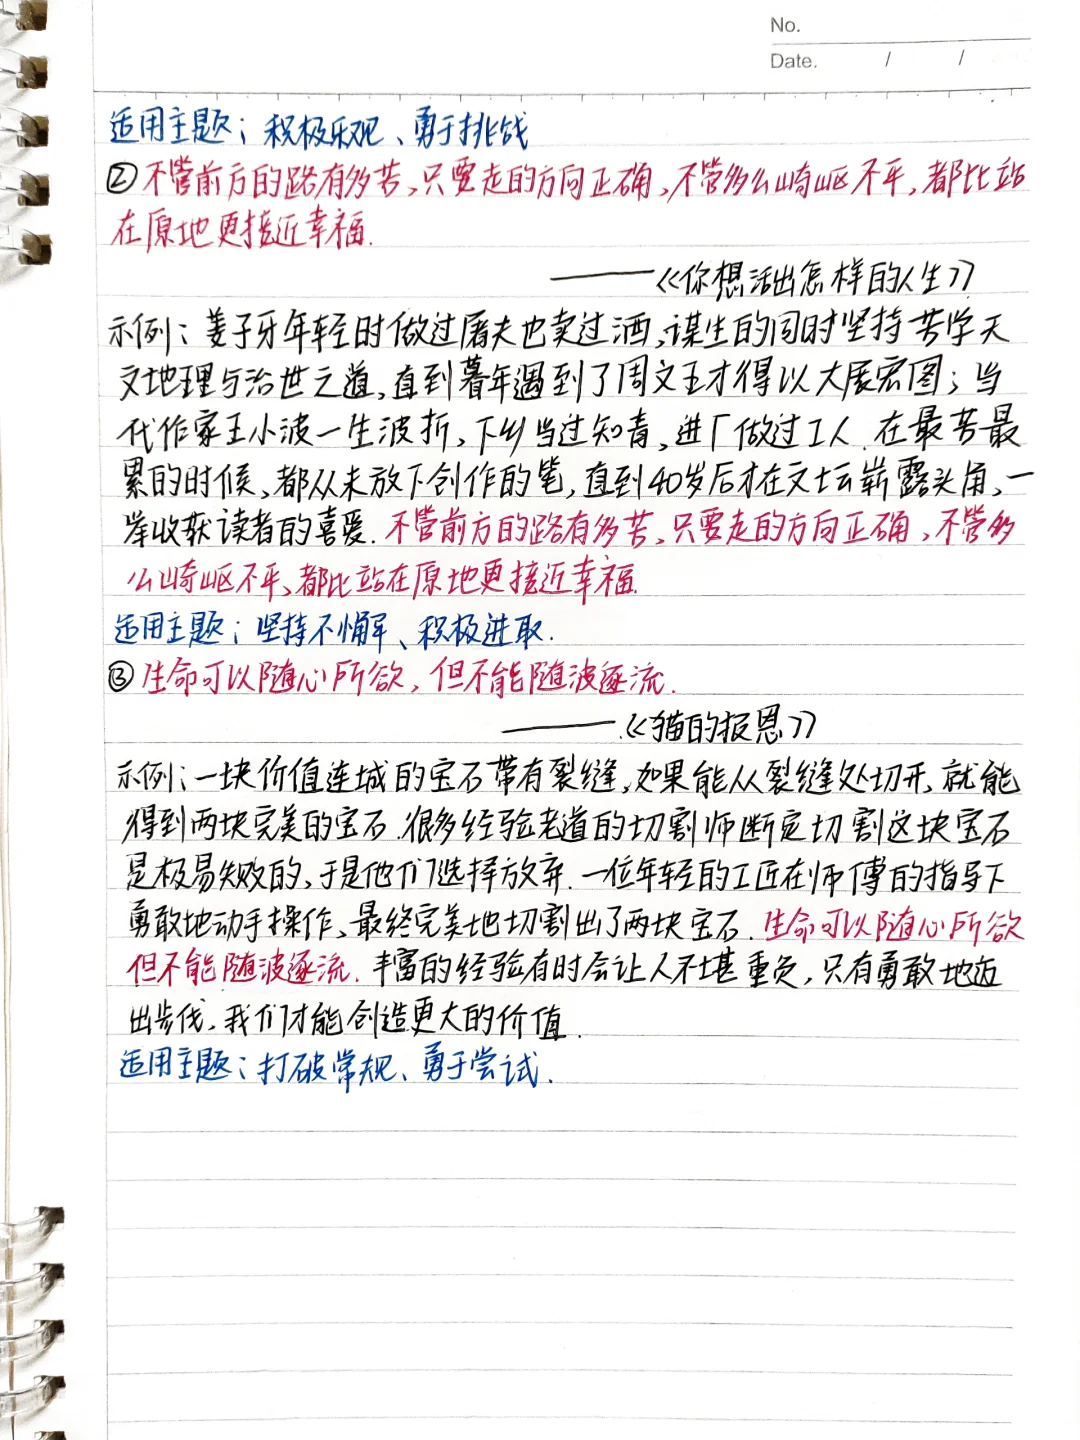 No.
Date. / /
适用主题：积极乐观、勇于挑战
②不管前方的路有多苦，只要走的方向正确，不管多么崎岖不平，都比站
在原地更接近幸福.
——《你想活出怎样的人生》
示例：姜子牙年轻时做过屠夫也卖过酒，谋生的同时坚持苦学天
文地理与治世之道，直到暮年遇到了周文王才得以大展宏图；当
代作家王小波一生波折，下乡当过知青，进厂做过工人.在最苦最
累的时候，都从未放下创作的笔，直到40岁后才在文坛崭露头角，一
举收获读者的喜爱.不管前方的路有多苦，只要走的方向正确，不管多
么崎岖不平，都比站在原地更接近幸福.
适用主题：坚持不懈、积极进取.
③生命可以随心所欲，但不能随波逐流.
——《猫的报恩》
示例：一块价值连城的宝石带有裂缝，如果能从裂缝处切开，就能
得到两块完美的宝石.很多经验老道的切割师断定切割这块宝石
是极易失败的，于是他们选择放弃.一位年轻的工匠在师傅的指导下
勇敢地动手操作，最终完美地切割出了两块宝石.生命可以随心所欲
但不能随波逐流.丰富的经验有时会让人不堪重负，只有勇敢地迈
出步伐，我们才能创造更大的价值.
适用主题：打破常规、勇于尝试.